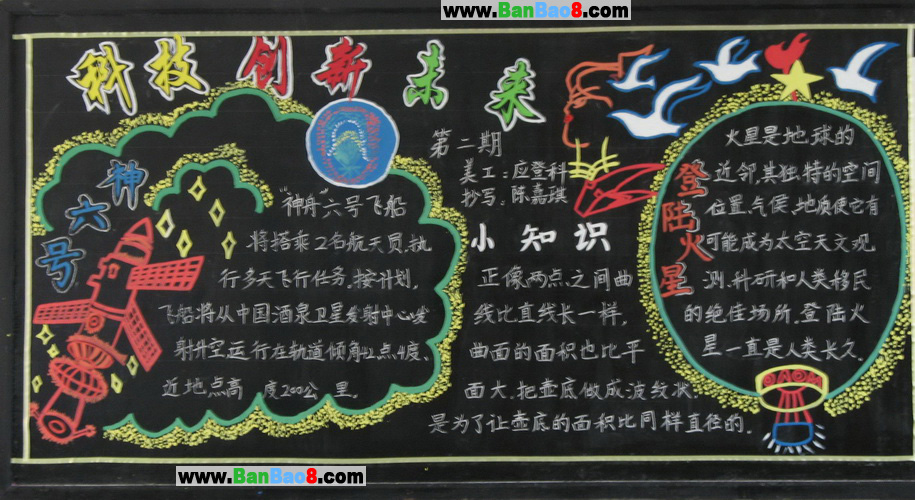 www.BanBao8.com
科技创新未来
神六号
"神舟"六号飞船
将搭乘2名航天员,执
行多天飞行任务,按计划,
飞船将从中国酒泉卫星发射中心发
射升空运行在轨道倾角42点4度、
近地点高 度200公里,
第二期
美工:应登科
抄写:陈嘉琪
小知识
正像两点之间曲
线比直线长一样,
曲面的面积也比平
面大.把壶底做成波纹状.
是为了让壶底的面积比同样直径的.
登陆火星
火星是地球的
近邻,其独特的空间
位置.气侯.地质使它有
可能成为太空天文观
测.科研和人类移民
的绝佳场所.登陆火
星一直是人类长久.
www.BanBao8.com